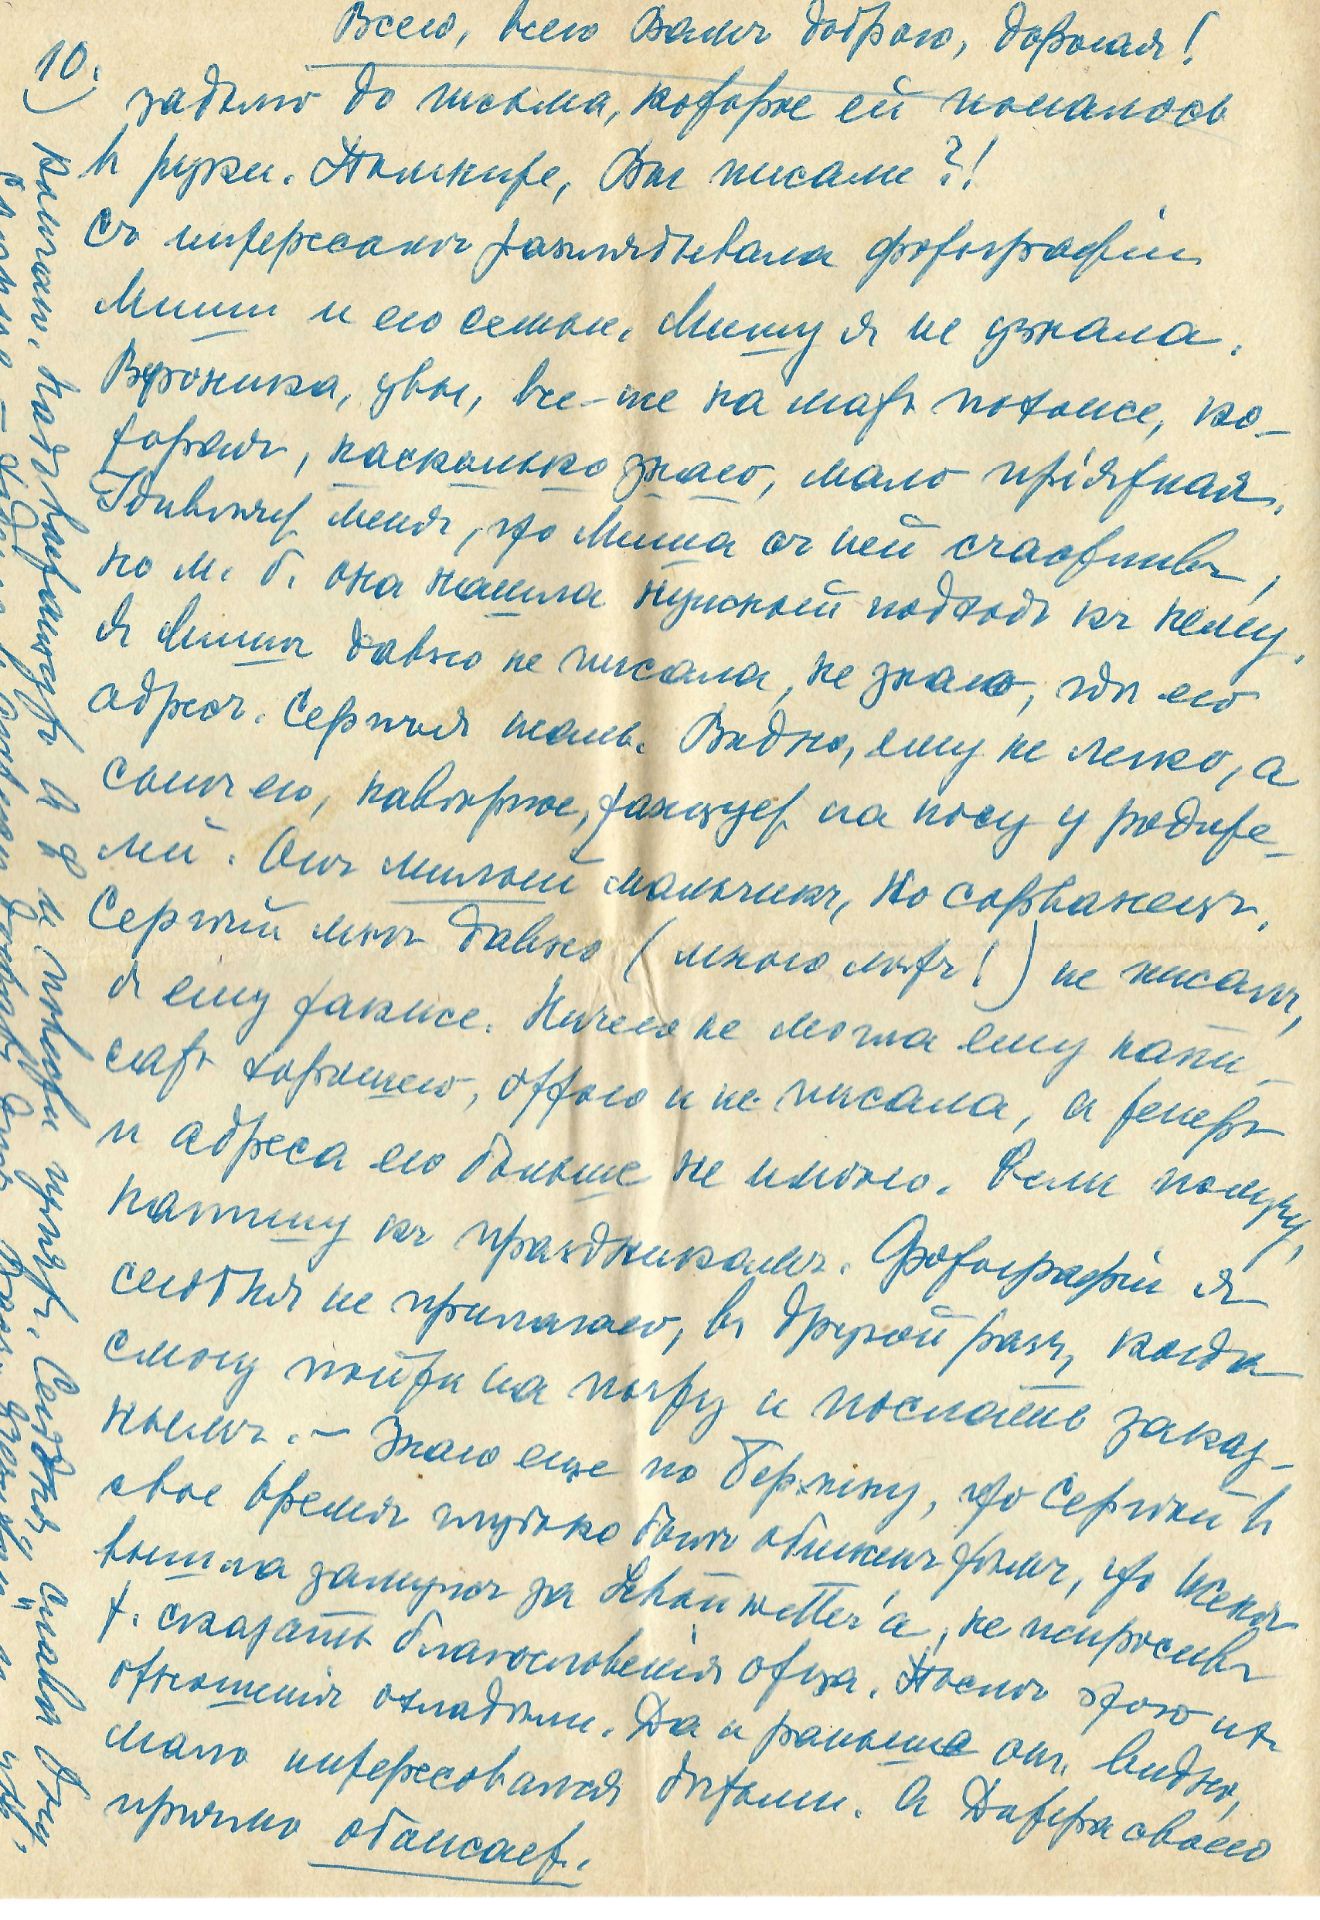 Всего, всего Вамъ добраго, дорогая!
10.
задѣло до письма, которое ей попалось
въ руки. Помните, Вы писали?!
Съ интересомъ разглядывала фотографіи
Миши и его семьи. Мишу я не узнала.
Вероника, увы, все-же на мать похоже, ко-
торая, насколько знаю, мало пріятная.
Удивляетъ меня, что Миша съ ней счастливъ,
но м. б. она нашла нужный подходъ къ нему.
Я Мишѣ давно не писала, не знаю, гдѣ его
адресъ. Сергѣя жаль. Видно, ему не легко, а
сынъ его, навѣрное, танцуетъ на носу у родите-
лей. Онъ милый мальчикъ, но сорванецъ.
Сергѣй мнѣ давно (много лѣтъ!) не писалъ,
я ему также. Ничего не могла ему напи-
сать хорошего, оттого и не писала, а теперь
и адреса его больше не имѣю. Если получу,
напишу къ праздникамъ. Фотографіи я
сегодня не прилагаю, въ другой разъ, когда
смогу пойти на почту и послать заказ-
нымъ. – Знаю еще по Берлину, что Сергѣй въ
свое время глубоко былъ обиженъ тѣмъ, что Женя
вышла замужъ за Schönwetter'а, не испросивъ
т. сказать благословенія отца. Послѣ этого их
отношенія охладѣли. Да и раньше он, видно,
мало интересовался дѣтьми. А Петра своего
прямо обожаетъ.
кончаю. Надъ
Сегодня, слава Богу